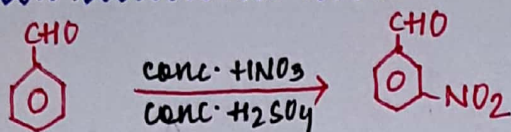 CHO
conc. HNO3
conc. H2SO4
CHO
NO2